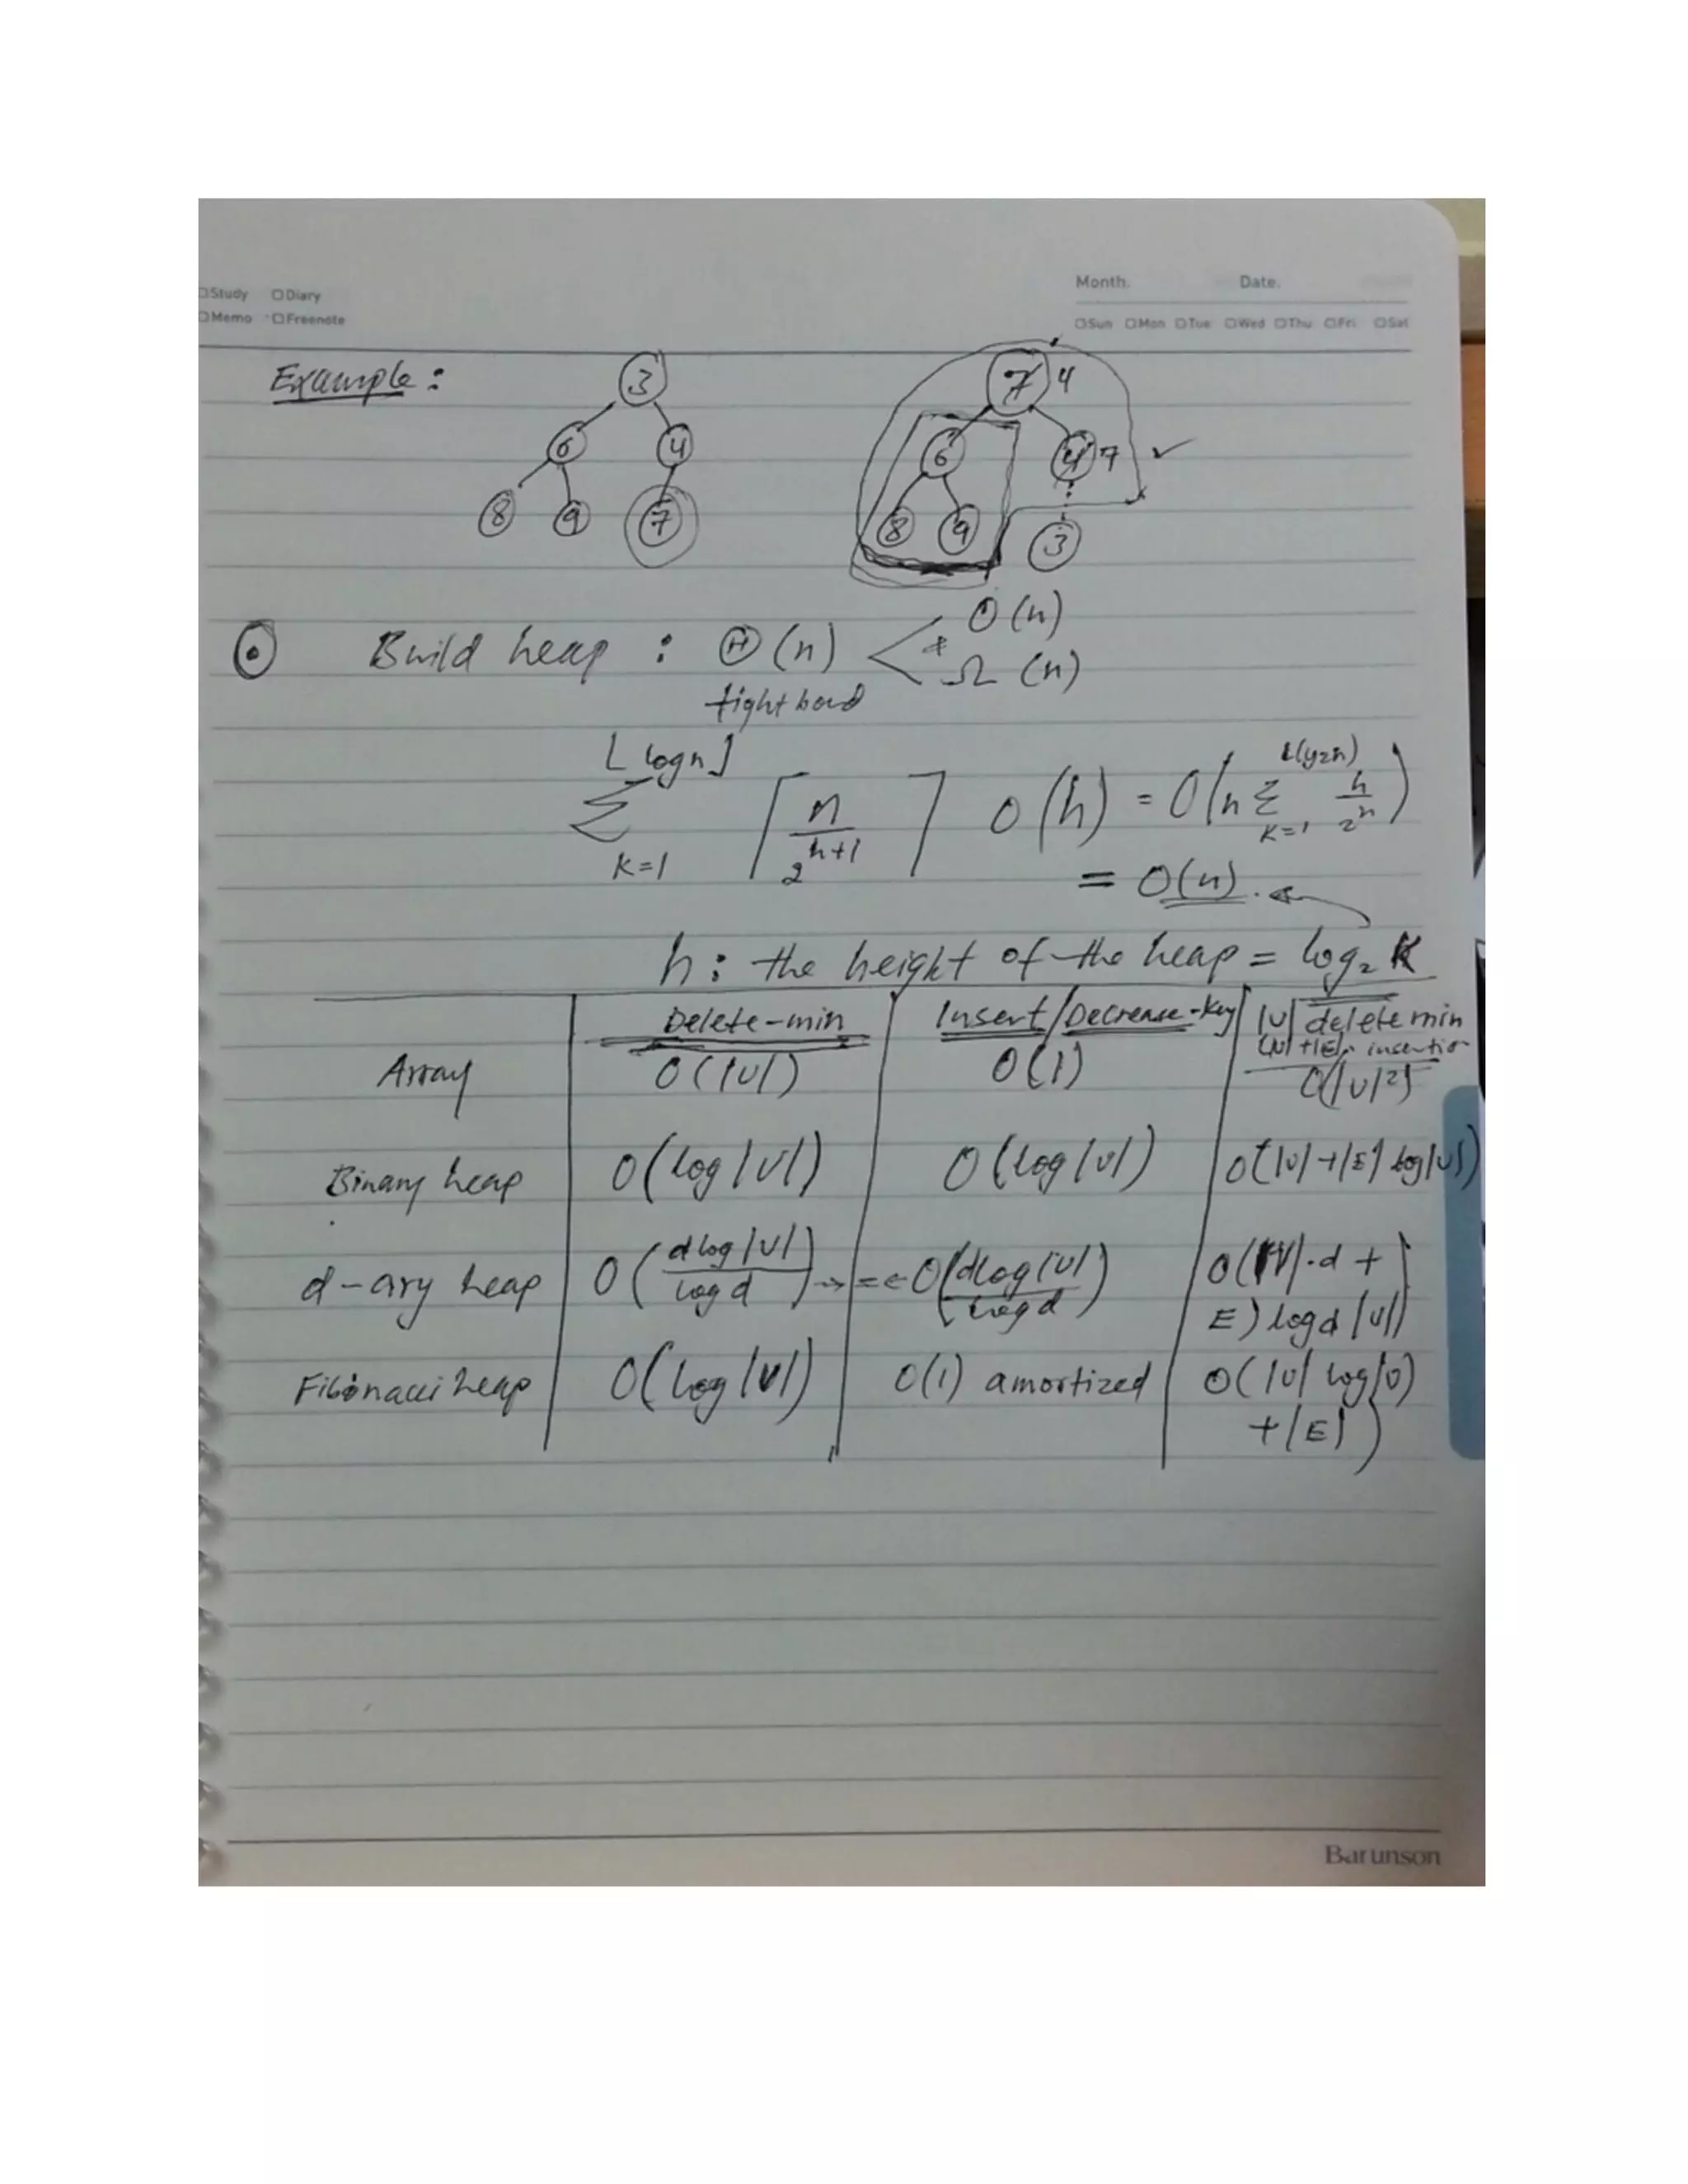 □Study □Diary
□Memo □Freenote
Month. Date.
□Sun □Mon □Tue □Wed □Thu □Fri □Sat
Example:
3
6 4
8 9 7
7 4
6 4 7
8 9 3
Build heap : Θ(n) < O(n)
Ω(n)
tight bond
⌊logn⌋
Σ ⌈n/2^(h+1)⌉ O(h) = O(n Σ h/2^h)
K=1 K=1
= O(n).
h: the height of the heap = log₂ K
Delete-min Insert/Decrease-key |V| delete min
(|V|+|E|) insertion
Array O(|V|) O(1) O(|V|²)
Binary heap O(log|V|) O(log|V|) O(|V|+|E| log|V|)
d-ary heap O(dlog|V|/logd) → = ← O(dlog|V|/logd) O(|V|.d +
E) logd |V|)
Fibonacci heap O(log|V|) O(1) amortized O(|V| log|V|
+|E|)
Barunson